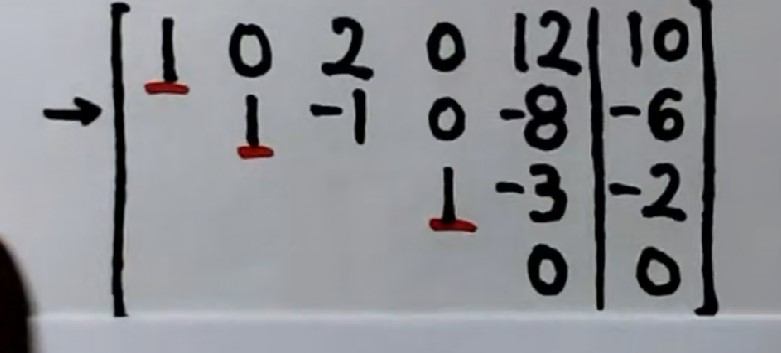 1 0 2 0 12 10
→ 1 -1 0 -8 -6
1 -3 -2
0 0